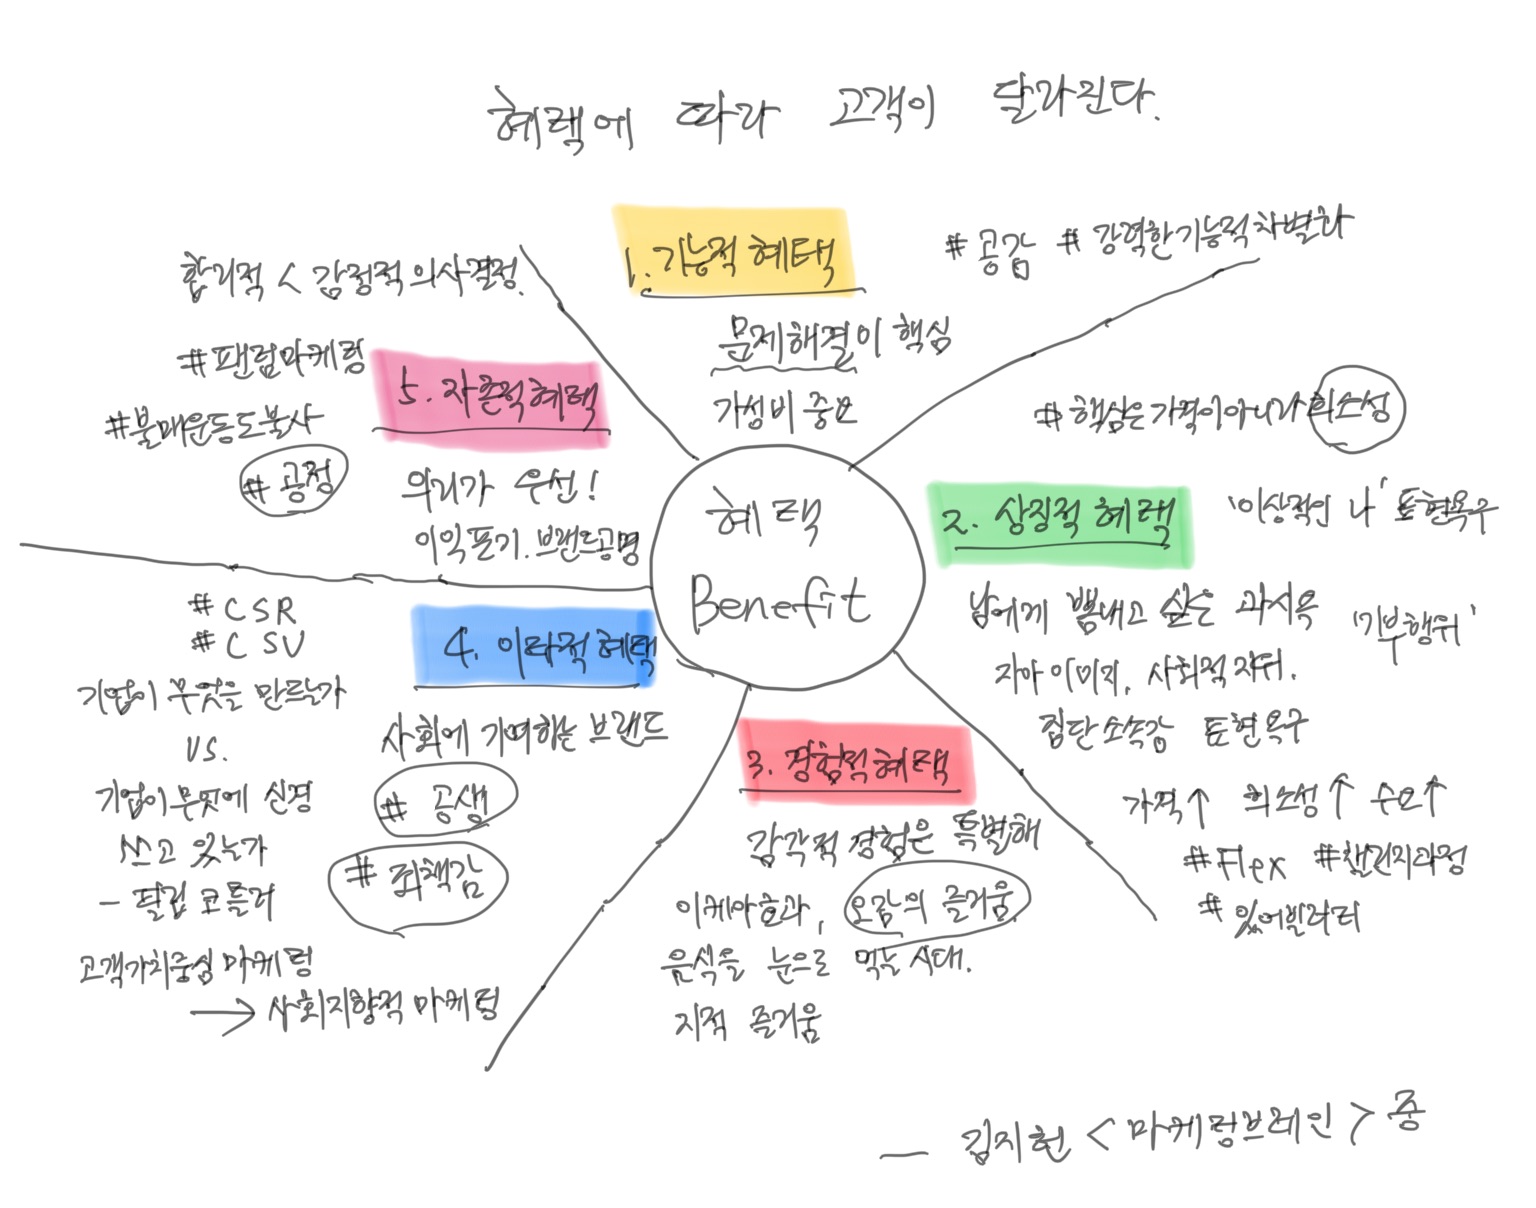 혜택에 따라 고객이 달라진다.
혜택
Benefit
1. 기능적 혜택
# 공감 # 강력한기능적차별화
문제해결이 핵심
가성비 중요
2. 상징적 혜택
# 핵심은 가격이 아니라 희소성
'이상적인 나' 표현욕구
남에게 뽐내고 싶은 과시욕
'기부행위'
자아 이미지, 사회적 지위.
집단소속감 표현욕구
가격↑ 희소성↑ 수요↑
#Flex #챌린지과정
# 있어빌리티
3. 경험적혜택
감각적 경험은 특별해
이케아효과, 오감의 즐거움
음식을 눈으로 먹는 시대.
지적 즐거움
4. 이타적 혜택
# CSR
# CSV
사회에 기여하는 브랜드
# 공생
# 죄책감
기업이 무엇을 만드는가
VS.
기업이 무엇에 신경
쓰고 있는가
- 필립 코틀러
고객가치중심 마케팅
→ 사회지향적 마케팅
5. 자존적혜택
합리적 < 감정적 의사결정.
#팬덤마케팅
#불매운동도불사
# 공정
의리가 우선!
이익포기. 브랜드공명
— 김지헌 <마케팅브레인> 중